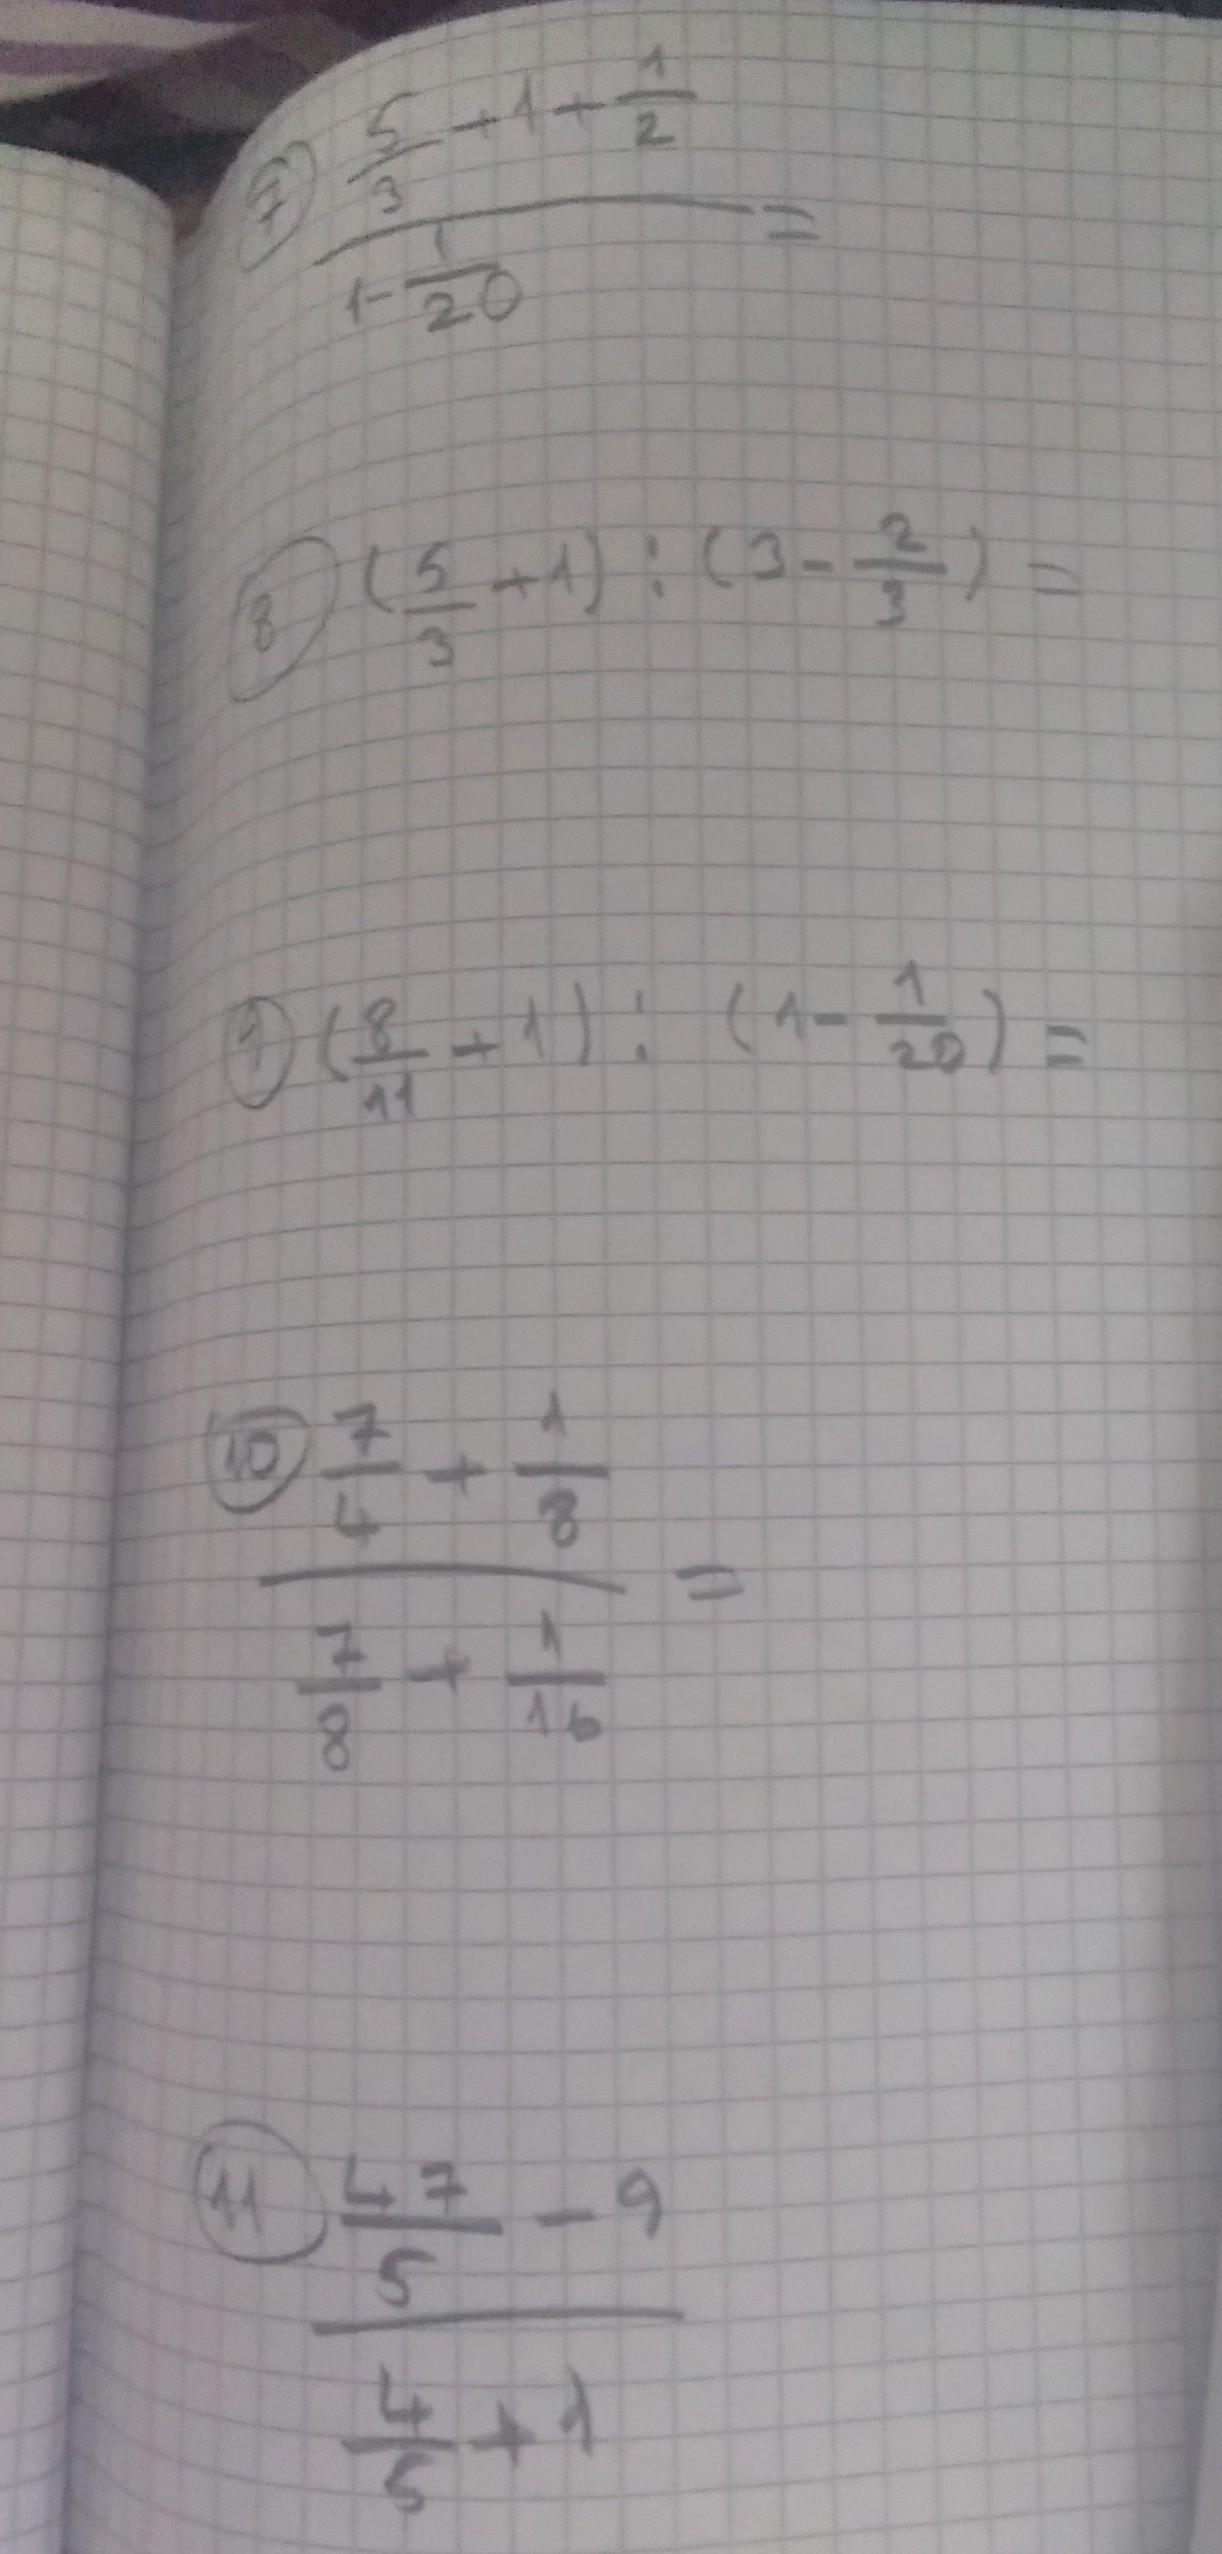 7 5/3 + 1 + 1/2
=
1 - 1/20
8 (5/3 + 1) : (3 - 2/3) =
9 (8/11 + 1) : (1 - 1/20) =
10 7/4 + 1/8
=
7/8 + 1/16
11 47/5 - 9
4/5 + 1